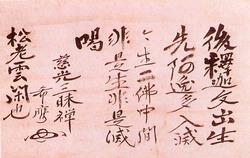 後釋迦文出生
先阿逸多入滅
生二佛中間
非是生非是滅
喝
慈光三昧禪
希膺
松老雲閑也